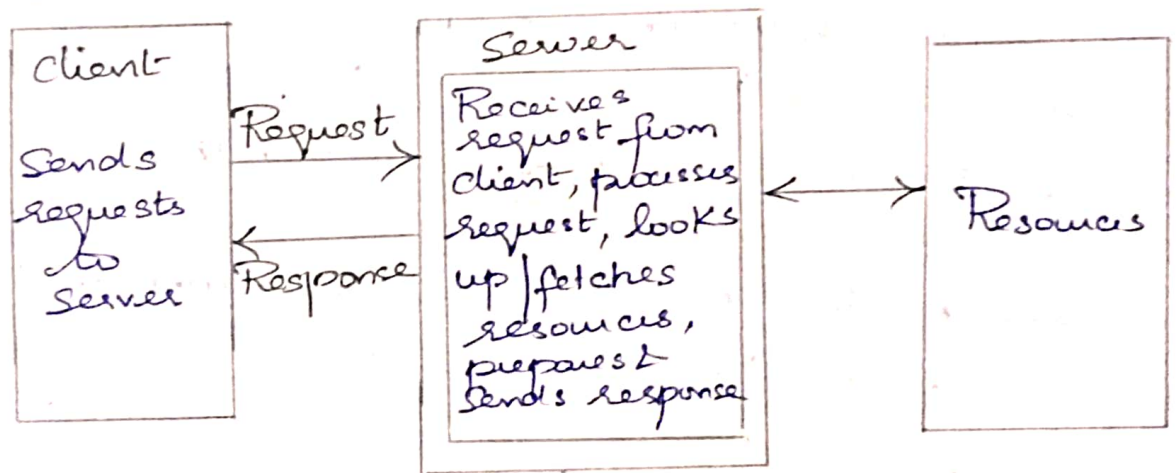 Client
Sends
requests
to
Server
Request
Response
Server
Receives
request from
client, processes
request, looks
up/fetches
resources,
prepares &
sends response
Resources